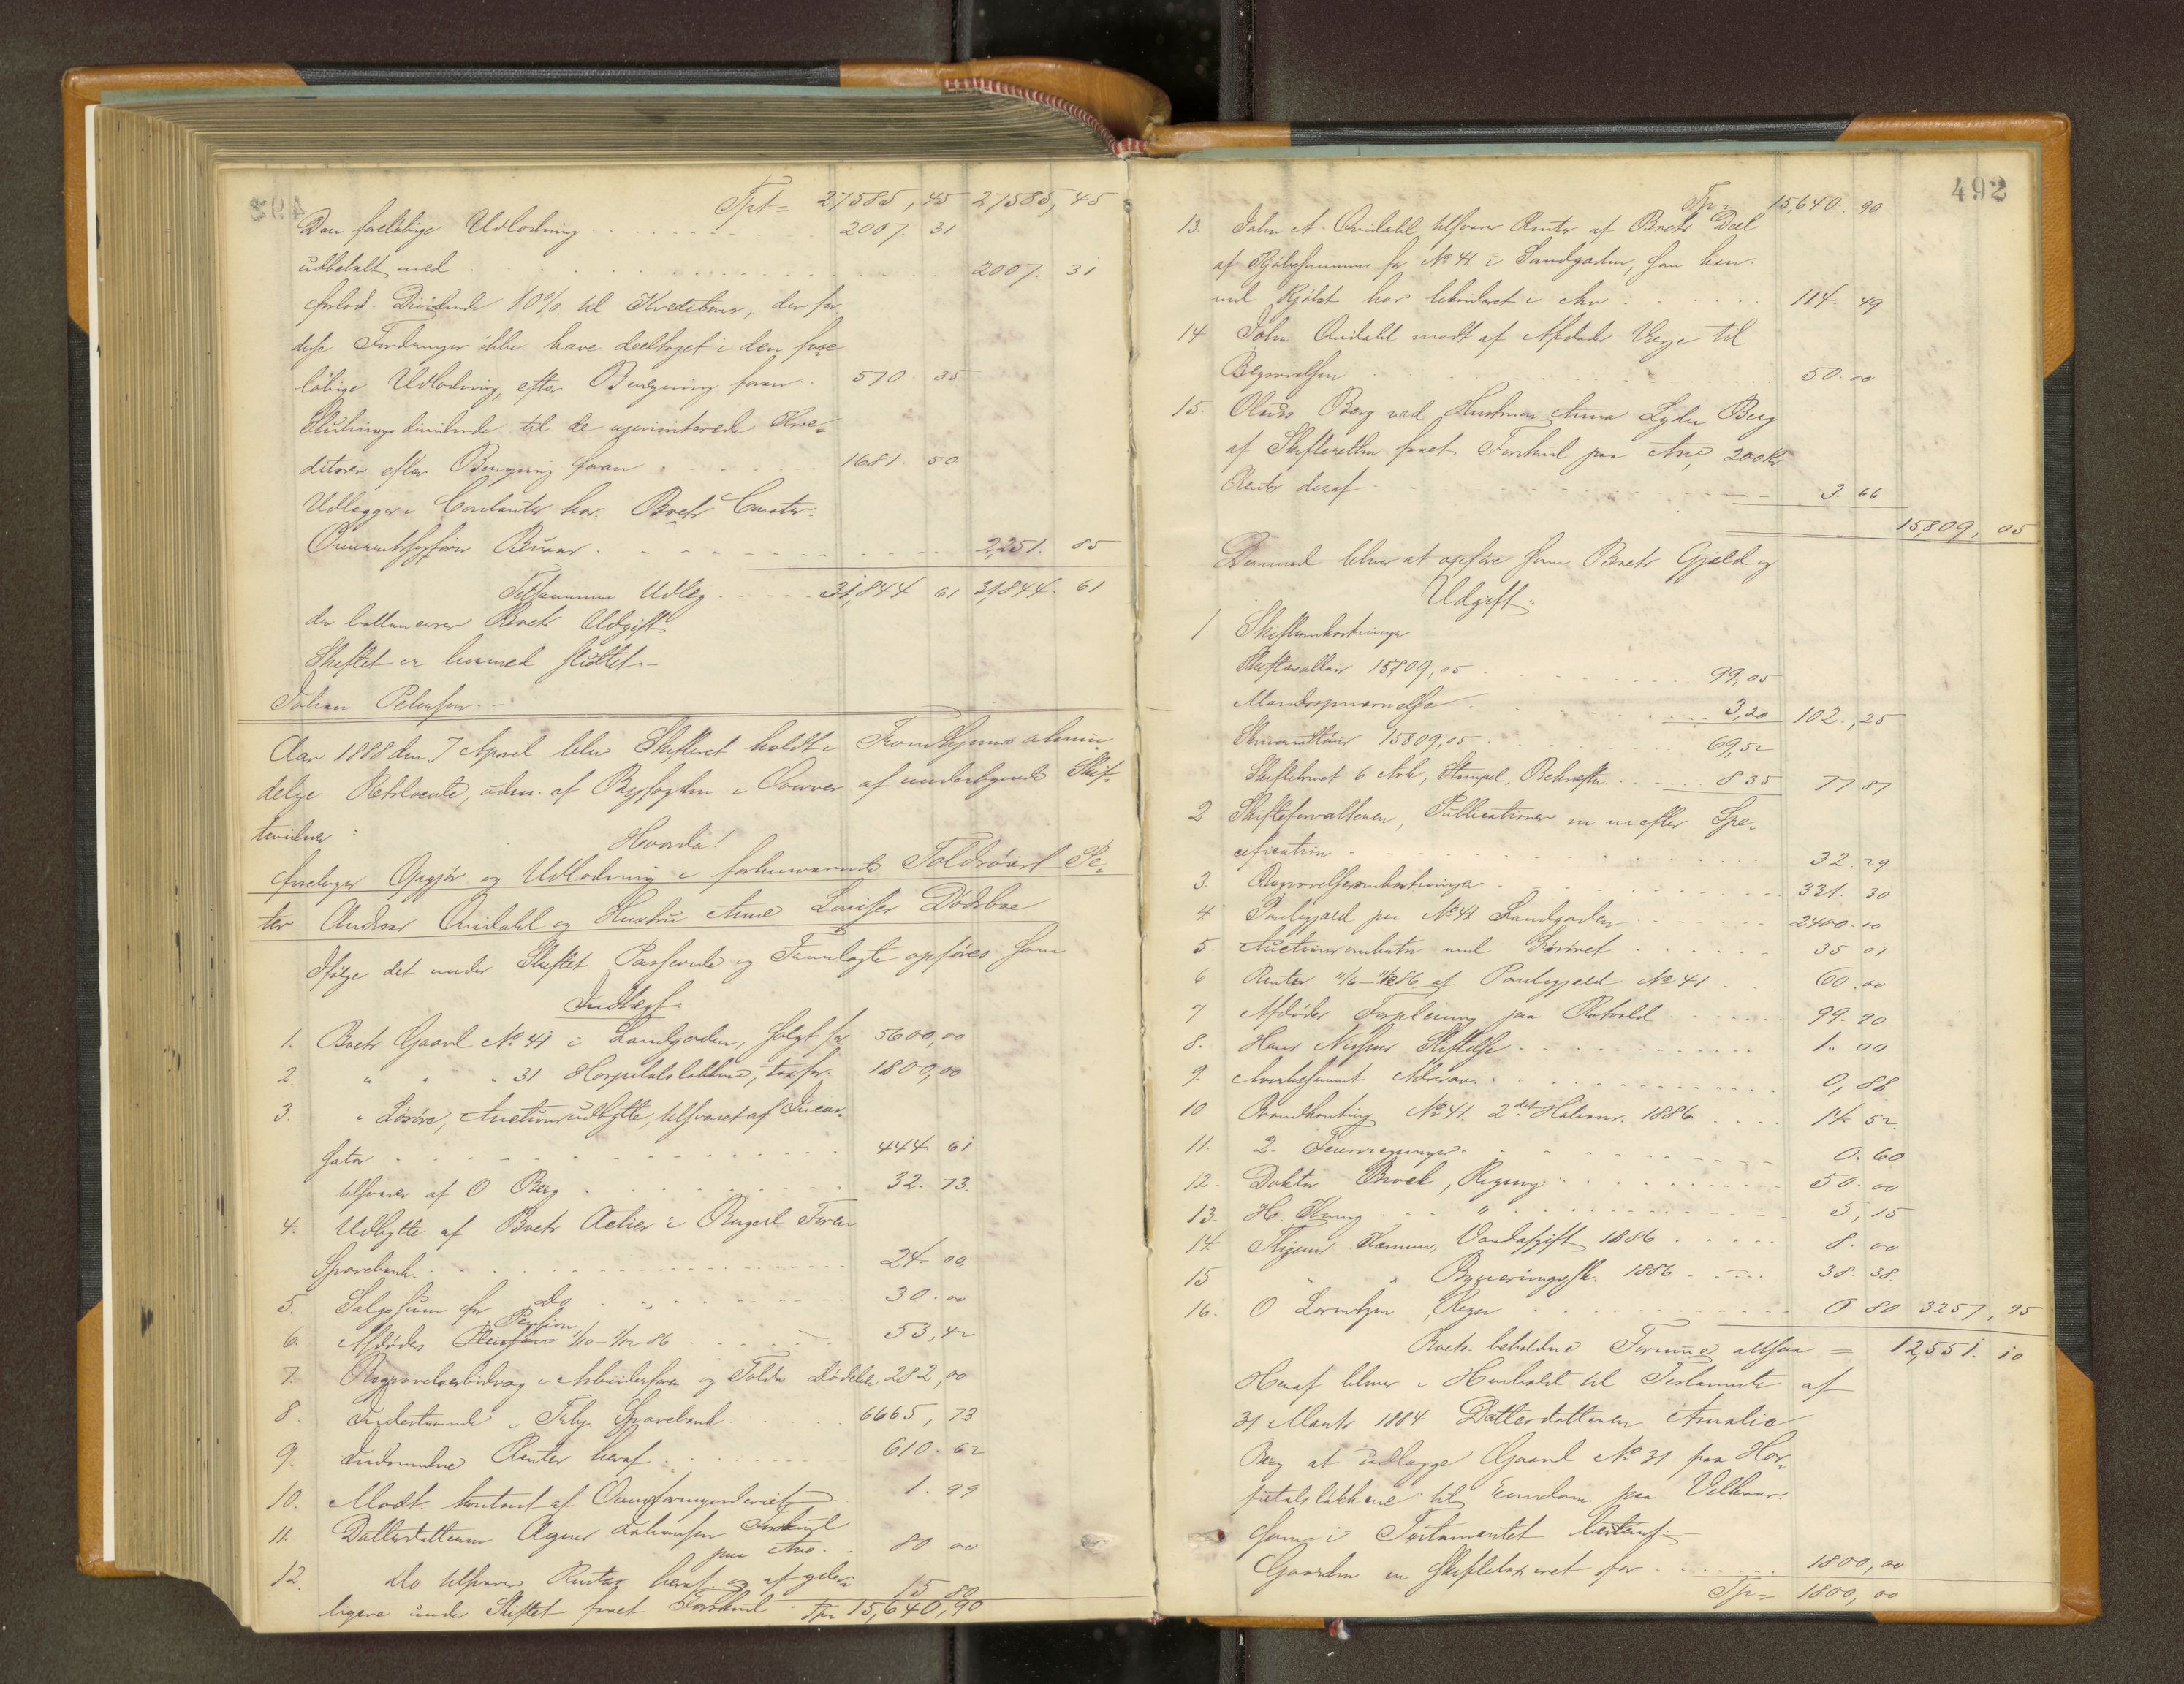 Tpt = 27585,45 27585,45
Den foreløbige Udlodning 2007. 31
udbetalt med 2007. 31
forlod. Dividende 10% til Kreditorer, der for
disse Fordringer ikke have deeltaget i den fore-
løbige Udlodning, efter Beregning foran. 570 35
Slutningsdividende til de uprioriterede Kre-
ditorer efter Beregning foran 1681. 50
Udlægges Contanter hos Boets Curator
Overretssagfører 2,251. 85
Tilsammen Udlæg 31,844 61 31,844. 61
der ballancerer Boets Udgift
Skiftet er hermed sluttet.
Johan Petersen.
Aar 1888 den 7 April blev Skifteret holdt i Trondhjems almin-
delige Retslocale, adm. af Byfogden i Overvær af undertegnede Skif-
tevidner:
Hvorda!
foretoges Opgjør og Udlodning i forhenværende Toldrorert Pe-
ter Andreas Qvidahl og Hustru Anne Lovises Dødsboe
Ifølge det under Skiftet Passerede og Fremlagte opføres som
Indtægt.
1. Boets Gaard No 41 i Sandgaden, solgt for 5600,00
2. " " " 31 Hospitalsløkkene, tax for 1800,00
3. " Løsøre, Auctionsudbytte, tilsvaret af Incas-
sator 444. 61
tilsvares af O Berg 32. 73.
4. Udbytte af Boets Actier i Sparebank. 24. 00
5. Salgssum for Do 30. 00
6. Afdødes Pension 1/10 - 7/12 86 53,42
7. Begravelsesbidrag i Arbeiderforen og Toldv 282,00
8. Indestaaende i Thj. Sparebank 6665, 73
9. Indvundne Renter heraf 610. 62
10. Modt. kontant af Overformynderiet 1. 99
11. Datterdatteren Agnes Johansen Forskud
paa Arv. 80 00
12. Do tilsvarer Renter heraf og af yder-
ligere under Skiftet faaet Forskud 15 80
Tpr 15,640,90
492
Tpr = 15,640. 90
13. John A. Qvidahl tilsvarer Renter af Boets Deel
af Kjøbesummen for No 41 i Sandgaden, som han
ved Kjøbet har likvideret i Arv 114. 49
14 John Qvidahl modt af Afdødes Verge til
Begravelsen 50. 00
15. Oluss Berg ved Hustruen Anna Lydia Berg
af Skifteretten faaet Forskud paa Arv, 200 Kr
Rente deraf 3. 66
15809, 05
Dermed bliver at opføre som Boets Gjæld og
Udgift.
1 Skifteomkostninger
Skiftesallair 15809,05 99,05
3,20 102,,25
15809,05 69,52
Skiftebrevet 6 Ark, Stempel, Bekræftn. 8 35 77 87
2 Skifteforvalteren, Publicationer m m efter Spe-
cification 32. 29
3. Begravelsesomkostninger 331. 30
4 Pantegjæld paa No 41 Sandgaden 2400. 00
5. Auctionsomkostn ved Løsøret 35 07
6 Renter 11/6 - 11/12 86 af Pantegjæld No 41 60. 00
7 Afdødes Forpleining paa Rotvold 99. 90
8. Hans Nissens Stiftelse 1. 00
9. 0, 88
10 Brandkonting No 41. 2det Halvaar. 1886 14. 52.
11. 2. 0. 60
12. Doktor Brock, Regning 50. 00
13. H. " 5, 15
14. Thjems Kæmner, Vandafgift 1886 8. 00
15 " " 1886 38. 38
16. O Lorentzen, Regn 0 80 3257, 95
Boets beholdne Formue altsaa = 12,551. 10
Heraf bliver i Henhold til Testamente af
31 Marts 1884 Datterdatteren Amalie
Berg at udlægge Gaard No 31 paa Hos-
pitalsløkkene til Eiendom paa Vilkaar
som i Testamentet bestemt.
Gaarden er skiftetaxeret for 1800,00
Tpr = 1800, 00